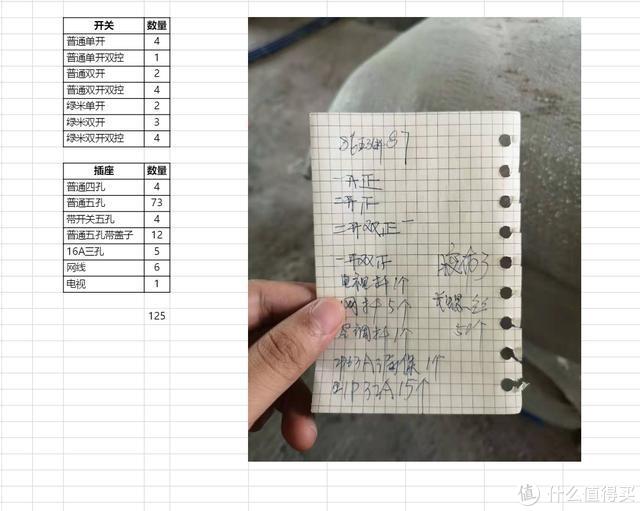 开关 数量
普通单开 4
普通单开双控 1
普通双开 2
普通双开双控 4
绿米单开 2
绿米双开 3
绿米双开双控 4
插座 数量
普通四孔 4
普通五孔 73
带开关五孔 4
普通五孔带盖子 12
16A三孔 5
网线 6
电视 1
125
87
一开正
二开正
二开双正一
二开双正
电视 1个
网 5个
空调 1个
1个
1P32A 15个
50个
值 什么值得买